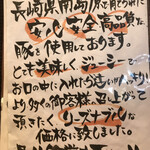 長崎県南島原で育てられた
安心安全高品質な
豚を使用しております。
とても美味しくジューシーで
お口の中に入れた
より多くの御客様に召上がって
頂きたくリーズナブルな
価格に致しました。